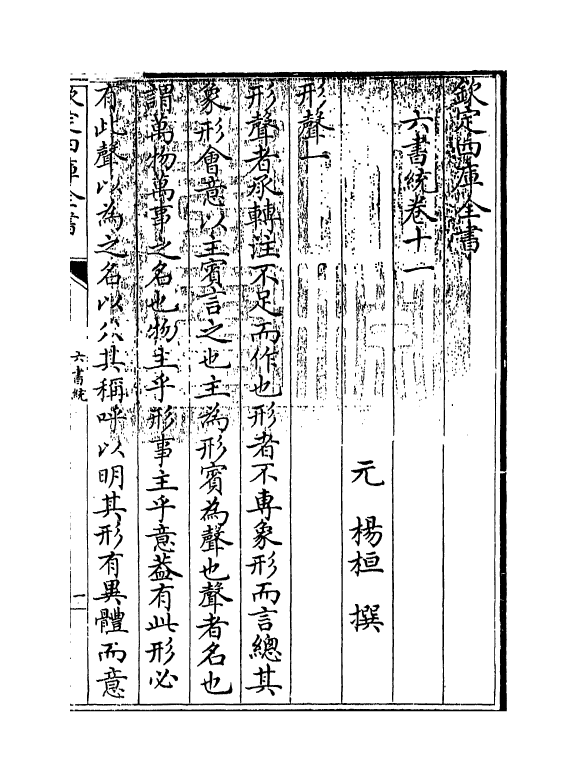 欽定四庫全書
六書統卷十一
元 楊桓 撰
形聲一
形聲者承轉注不足而作也形者不専象形而言總其
象形會意以主賓言之也主為形賓為聲也聲者名也
謂萬物萬事之名也物主乎形事主乎意葢有此形必
有此聲以為之名以分其稱呼以明其形有異體而意
欽定四庫全書
六書統
一